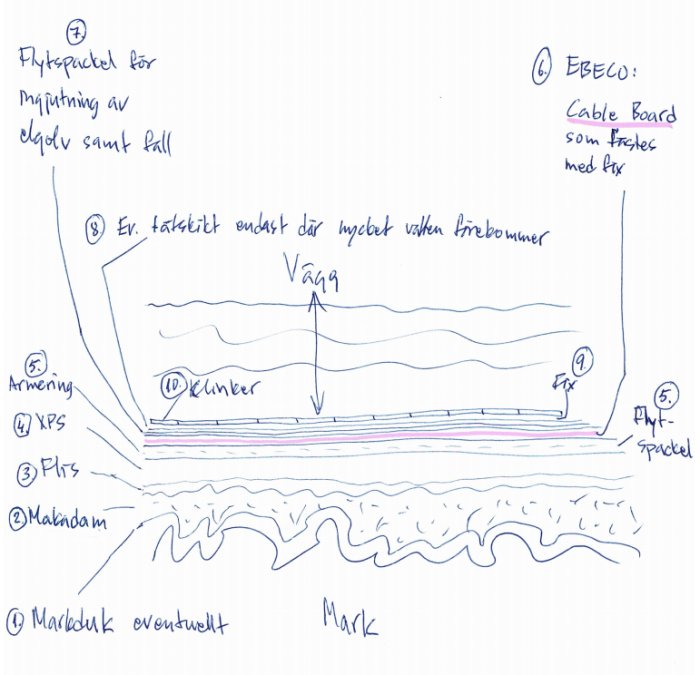 7.
Flytspackel för
ingjutning av
elgolv samt fall
6. EBECO:
Cable Board
som fästes
med fix
8. Ev. tätskikt endast där mycket vatten förekommer
Vägg
5.
Armering
10. Klinker
9.
Fix
5.
Flyt-
spackel
4. XPS
3. Flis
2. Makadam
1. Markduk eventuellt
Mark